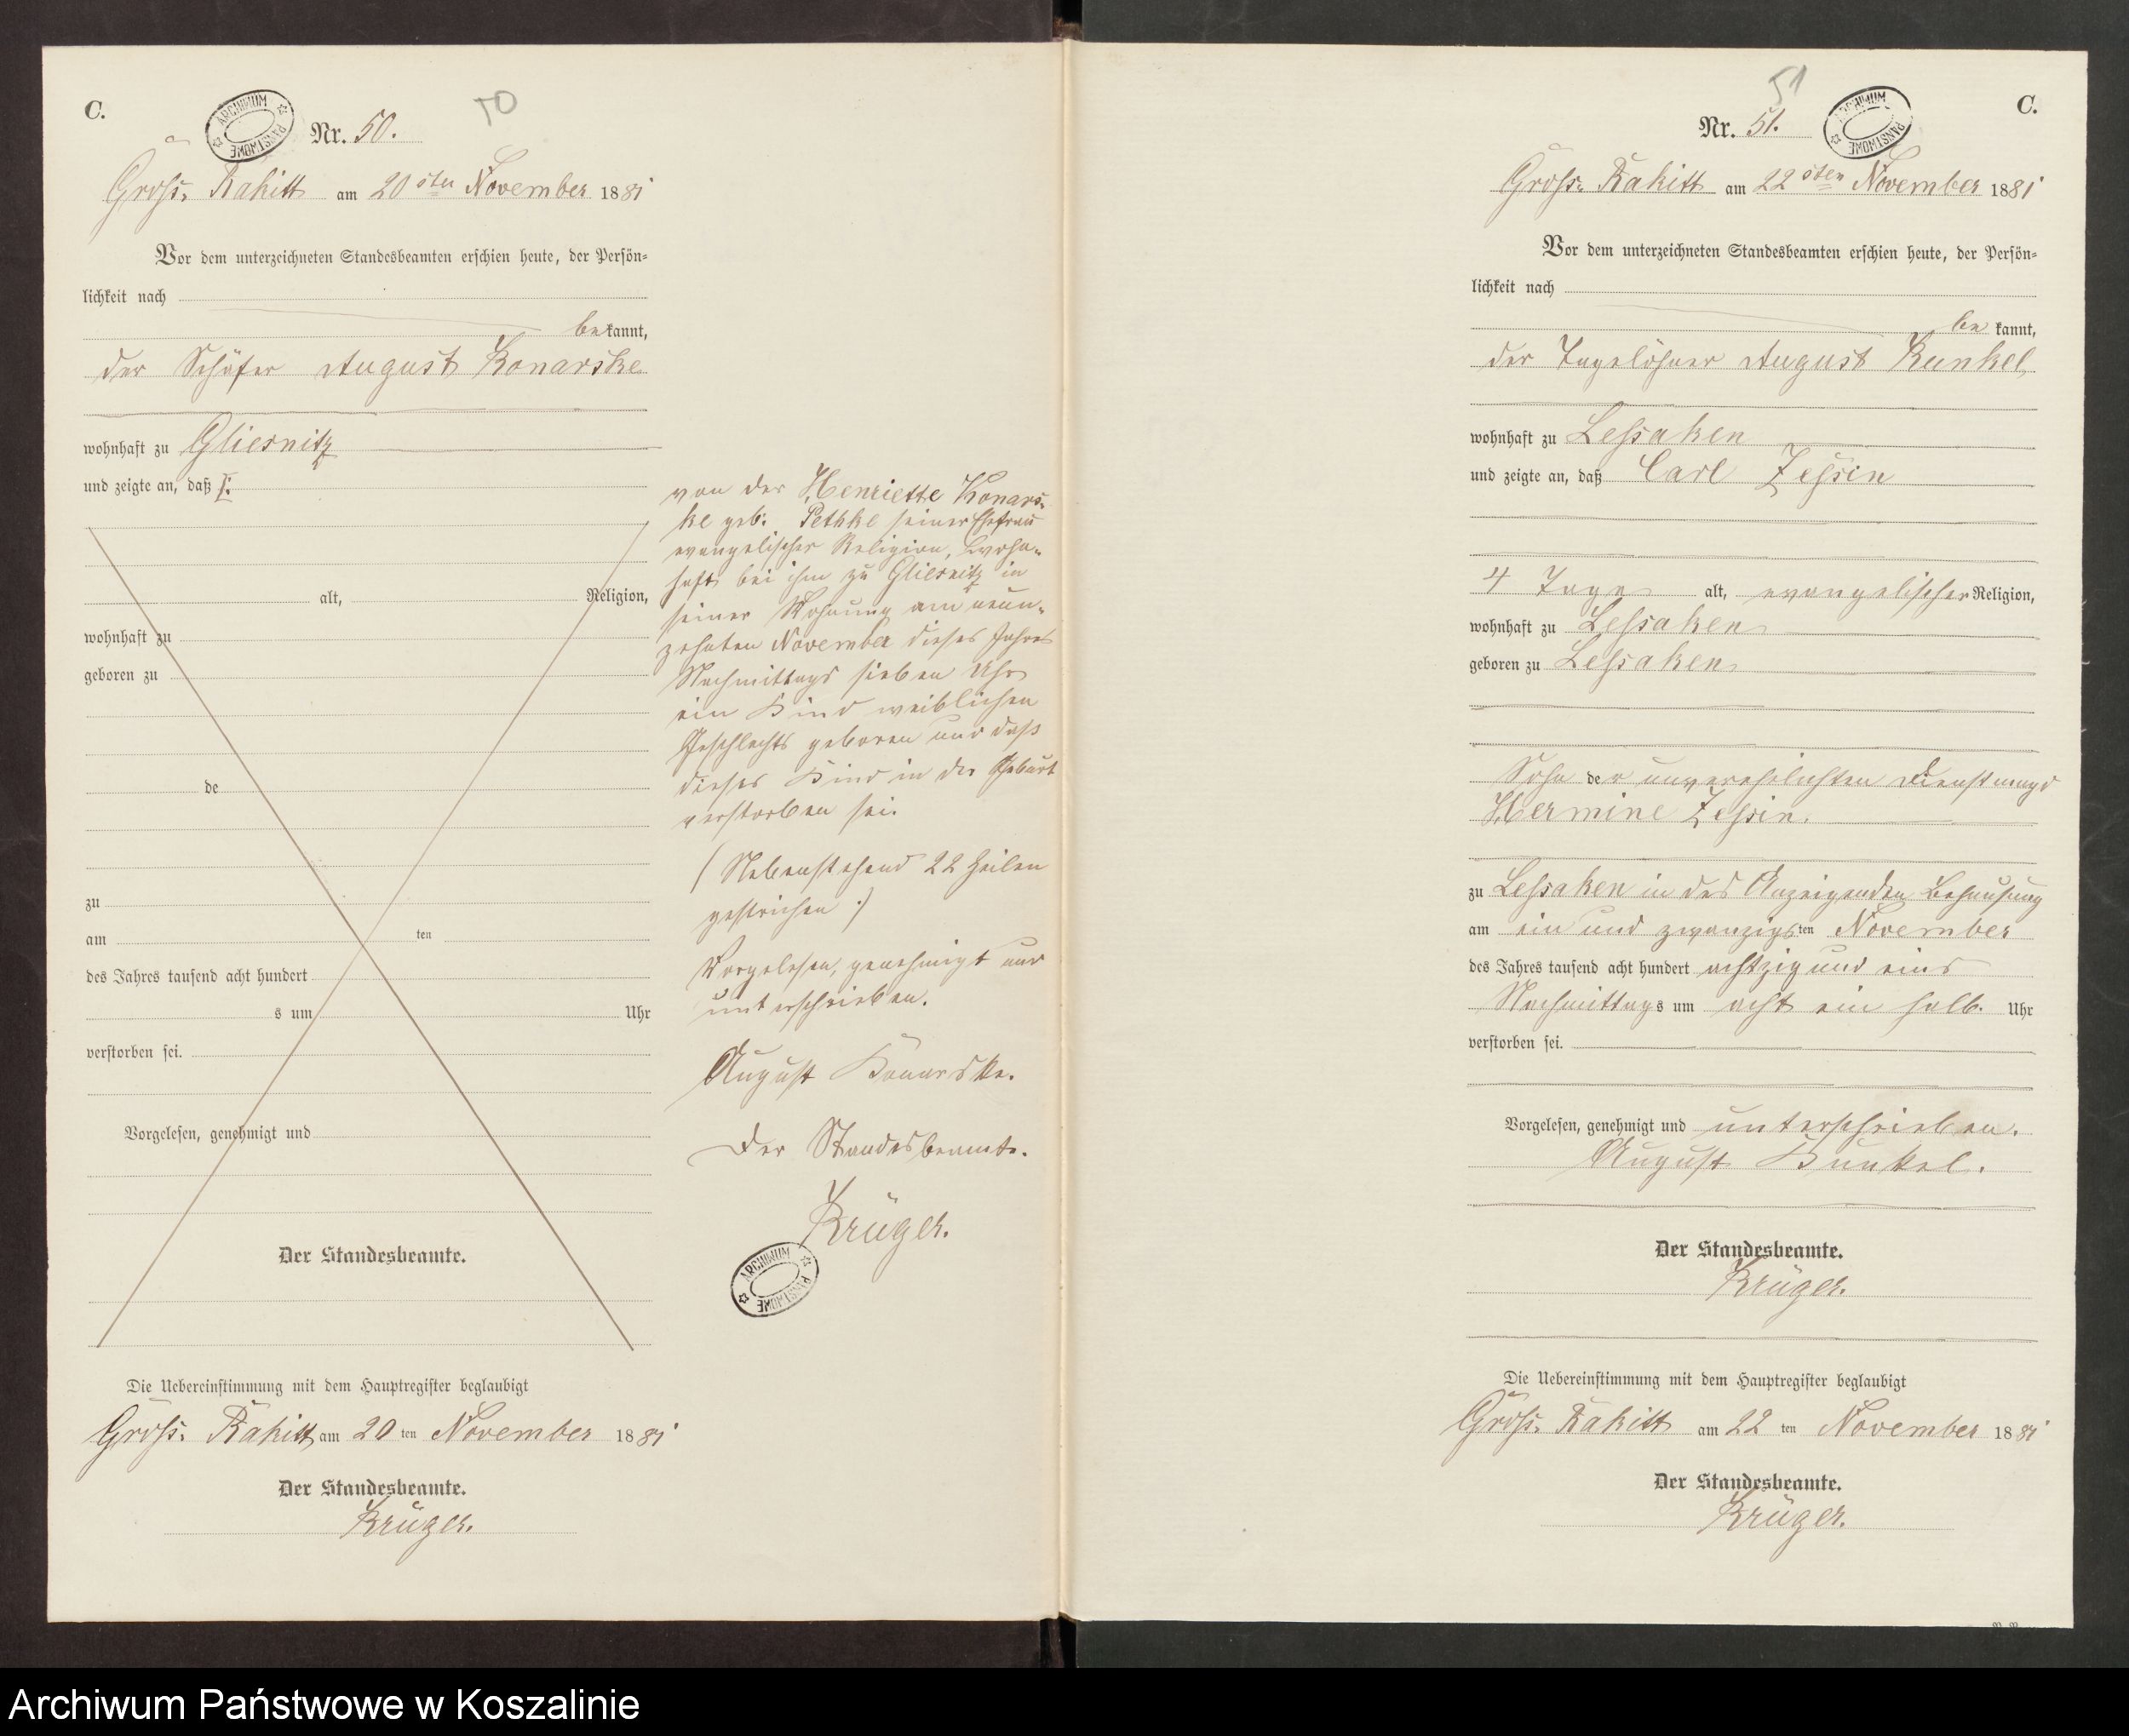 C.
ARCHIWUM PAŃSTWOWE
Nr. 50.
50
Gross Rakitt am 20sten November 1881
Vor dem unterzeichneten Standesbeamten erschien heute, der Persön-
lichkeit nach
bekannt,
der Schäfer August Konarske
wohnhaft zu Gliesnitz
und zeigte an, daß
alt, Religion,
wohnhaft zu
geboren zu
de
zu
am ten
des Jahres tausend acht hundert
s um Uhr
verstorben sei.
Vorgelesen, genehmigt und
Der Standesbeamte.
Die Uebereinstimmung mit dem Hauptregister beglaubigt
Gross Rakitt am 20 ten November 1881
Der Standesbeamte.
Krüger.
von der Henriette Konars-
ke geb. Pethke seiner Ehefrau
evangelischer Religion, wohn-
haft bei ihm zu Gliesnitz in
seiner Wohnung am neun-
zehnten November dieses Jahres
Nachmittags sieben Uhr
ein Kind weiblichen
Geschlechts geboren und daß
dieses Kind in der Geburt
verstorben sei.
(Nebenstehend 22 Zeilen
gestrichen.)
Vorgelesen, genehmigt und
unterschrieben.
August Konarske.
Der Standesbeamte.
Krüger.
ARCHIWUM PAŃSTWOWE
51
Nr. 51.
ARCHIWUM PAŃSTWOWE
C.
Gross Rakitt am 22sten November 1881
Vor dem unterzeichneten Standesbeamten erschien heute, der Persön-
lichkeit nach
be kannt,
der Tagelöhner August Kunkel
wohnhaft zu Lessaken
und zeigte an, daß Carl Zessin
4 Tage alt, evangelischer Religion,
wohnhaft zu Lessaken
geboren zu Lessaken
Sohn der unverehelichten Dienstmagd
Hermine Zessin.
zu Lessaken in des Anzeigenden Behausung
am ein und zwanzigsten November
des Jahres tausend acht hundert achtzig und eins
Nachmittags um acht ein halb Uhr
verstorben sei.
Vorgelesen, genehmigt und unterschrieben.
August Kunkel.
Der Standesbeamte.
Krüger.
Die Uebereinstimmung mit dem Hauptregister beglaubigt
Gross Rakitt am 22 ten November 1881
Der Standesbeamte.
Krüger.
Archiwum Państwowe w Koszalinie